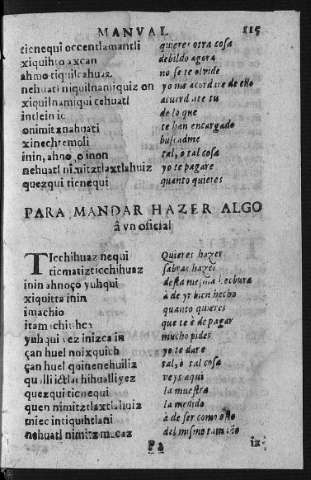 MANVAL 115
tienequi occentlamantli quieres otra cosa
xiquihto axcan debildo agora
ahmo tiquilcahuaz no se te olvide
nehuatl niquilnamiquiz on yo me acordare de esso
xiquilnamiqui tehuatl acuerdate tu
intlein ic de lo que
onimitznahuati te han encargado
xinechtemoli buscadme
inin, ahnoço inon tal, o tal cosa
nehuatl nimitztlaxtlahuiz yo te pagare
quezqui tienequi quanto quieres
PARA MANDAR HAZER ALGO
â vn oficial
TIcchihuaz nequi Quieres hazer
ticmatiz ticchihuaz sabras hazer
inin ahnoço yuhqui desta mesma hechura
xiquitta inin à de yr bien hecho
imachio quanto quieres
que te è de pagar
yuhqui yez inizca in mucho pides
çan huel noixquich yo te dare
çan huel quinenehuiliz tal, o tal cosa
qualli ic tlachihualli yez veys aqui
quezqui tienequi la muestra
quen nimitztlaxtlahuiz la medida
miec intiquihtlani à de ser como esto
nehuatl nimitzmacaz del mismo tamaño
Pa iz